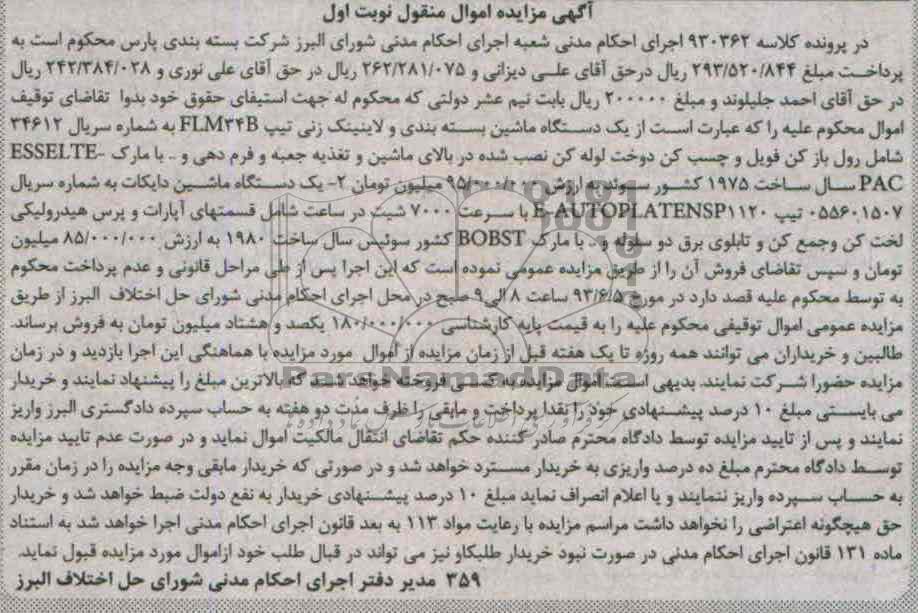 آگهی مزایده اموال منقول نوبت اول
در پرونده کلاسه ۹۳۰۳۶۲ اجرای احکام مدنی شعبه اجرای احکام مدنی شورای البرز شرکت بسته بندی پارس محکوم است به
پرداخت مبلغ ۲۹۳/۵۲۰/۸۴۴ ریال درحق آقای علی دیزانی و ۲۶۲/۲۸۱/۰۷۵ ریال در حق آقای علی نوری و ۲۴۲/۳۸۴/۰۲۸ ریال
در حق آقای احمد جلیلوند و مبلغ ۲۰۰۰۰۰ ریال بابت نیم عشر دولتی که محکوم له جهت استیفای حقوق خود بدوا تقاضای توقیف
اموال محکوم علیه را که عبارت است از یک دستگاه ماشین بسته بندی و لاینینک زنی تیپ FLM۳۴B به شماره سریال ۳۴۶۱۲
شامل رول باز کن فویل و چسب کن دوخت لوله کن نصب شده در بالای ماشین و تغذیه جعبه و فرم دهی و .. با مارک ESSELTE-
PAC سال ساخت ۱۹۷۵ کشور سوئد به ارزش ۹۵/۰۰۰/۰۰۰ میلیون تومان ۲- یک دستگاه ماشین دایکات به شماره سریال
۰۵۵۶۰۱۵۰۷ تیپ E-AUTOPLATENSP۱۱۲۰ با سرعت ۷۰۰۰ شیت در ساعت شامل قسمتهای آپارات و پرس هیدرولیکی
لخت کن وجمع کن و تابلوی برق دو سلوله و .. با مارک BOBST کشور سوئیس سال ساخت ۱۹۸۰ به ارزش ۸۵/۰۰۰/۰۰۰ میلیون
تومان و سپس تقاضای فروش آن را از طریق مزایده عمومی نموده است که این اجرا پس از طی مراحل قانونی و عدم پرداخت محکوم
به توسط محکوم علیه قصد دارد در مورخ ۹۳/۶/۵ ساعت ۸ الی ۹ صبح در محل اجرای احکام مدنی شورای حل اختلاف البرز از طریق
مزایده عمومی اموال توقیفی محکوم علیه را به قیمت پایه کارشناسی ۱۸۰/۰۰۰/۰۰۰ یکصد و هشتاد میلیون تومان به فروش برساند.
طالبین و خریداران می توانند همه روزه تا یک هفته قبل از زمان مزایده از اموال مورد مزایده با هماهنگی این اجرا بازدید و در زمان
مزایده حضورا شرکت نمایند. بدیهی است اموال مزایده به کسی فروخته خواهد شد که بالاترین مبلغ را پیشنهاد نمایند و خریدار
می بایستی مبلغ ۱۰ درصد پیشنهادی خود را نقدا پرداخت و مابقی را ظرف مدت دو هفته به حساب سپرده دادگستری البرز واریز
نمایند و پس از تایید مزایده توسط دادگاه محترم صادر کننده حکم تقاضای انتقال مالکیت اموال نماید و در صورت عدم تایید مزایده
توسط دادگاه محترم مبلغ ده درصد واریزی به خریدار مسترد خواهد شد و در صورتی که خریدار مابقی وجه مزایده را در زمان مقرر
به حساب سپرده واریز ننمایند و یا اعلام انصراف نماید مبلغ ۱۰ درصد پیشنهادی خریدار به نفع دولت ضبط خواهد شد و خریدار
حق هیچگونه اعتراضی را نخواهد داشت مراسم مزایده با رعایت مواد ۱۱۳ به بعد قانون اجرای احکام مدنی اجرا خواهد شد به استناد
ماده ۱۳۱ قانون اجرای احکام مدنی در صورت نبود خریدار طلبکاو نیز می تواند در قبال طلب خود ازاموال مورد مزایده قبول نماید.
۳۵۹ مدیر دفتر اجرای احکام مدنی شورای حل اختلاف البرز
ParsNamadData